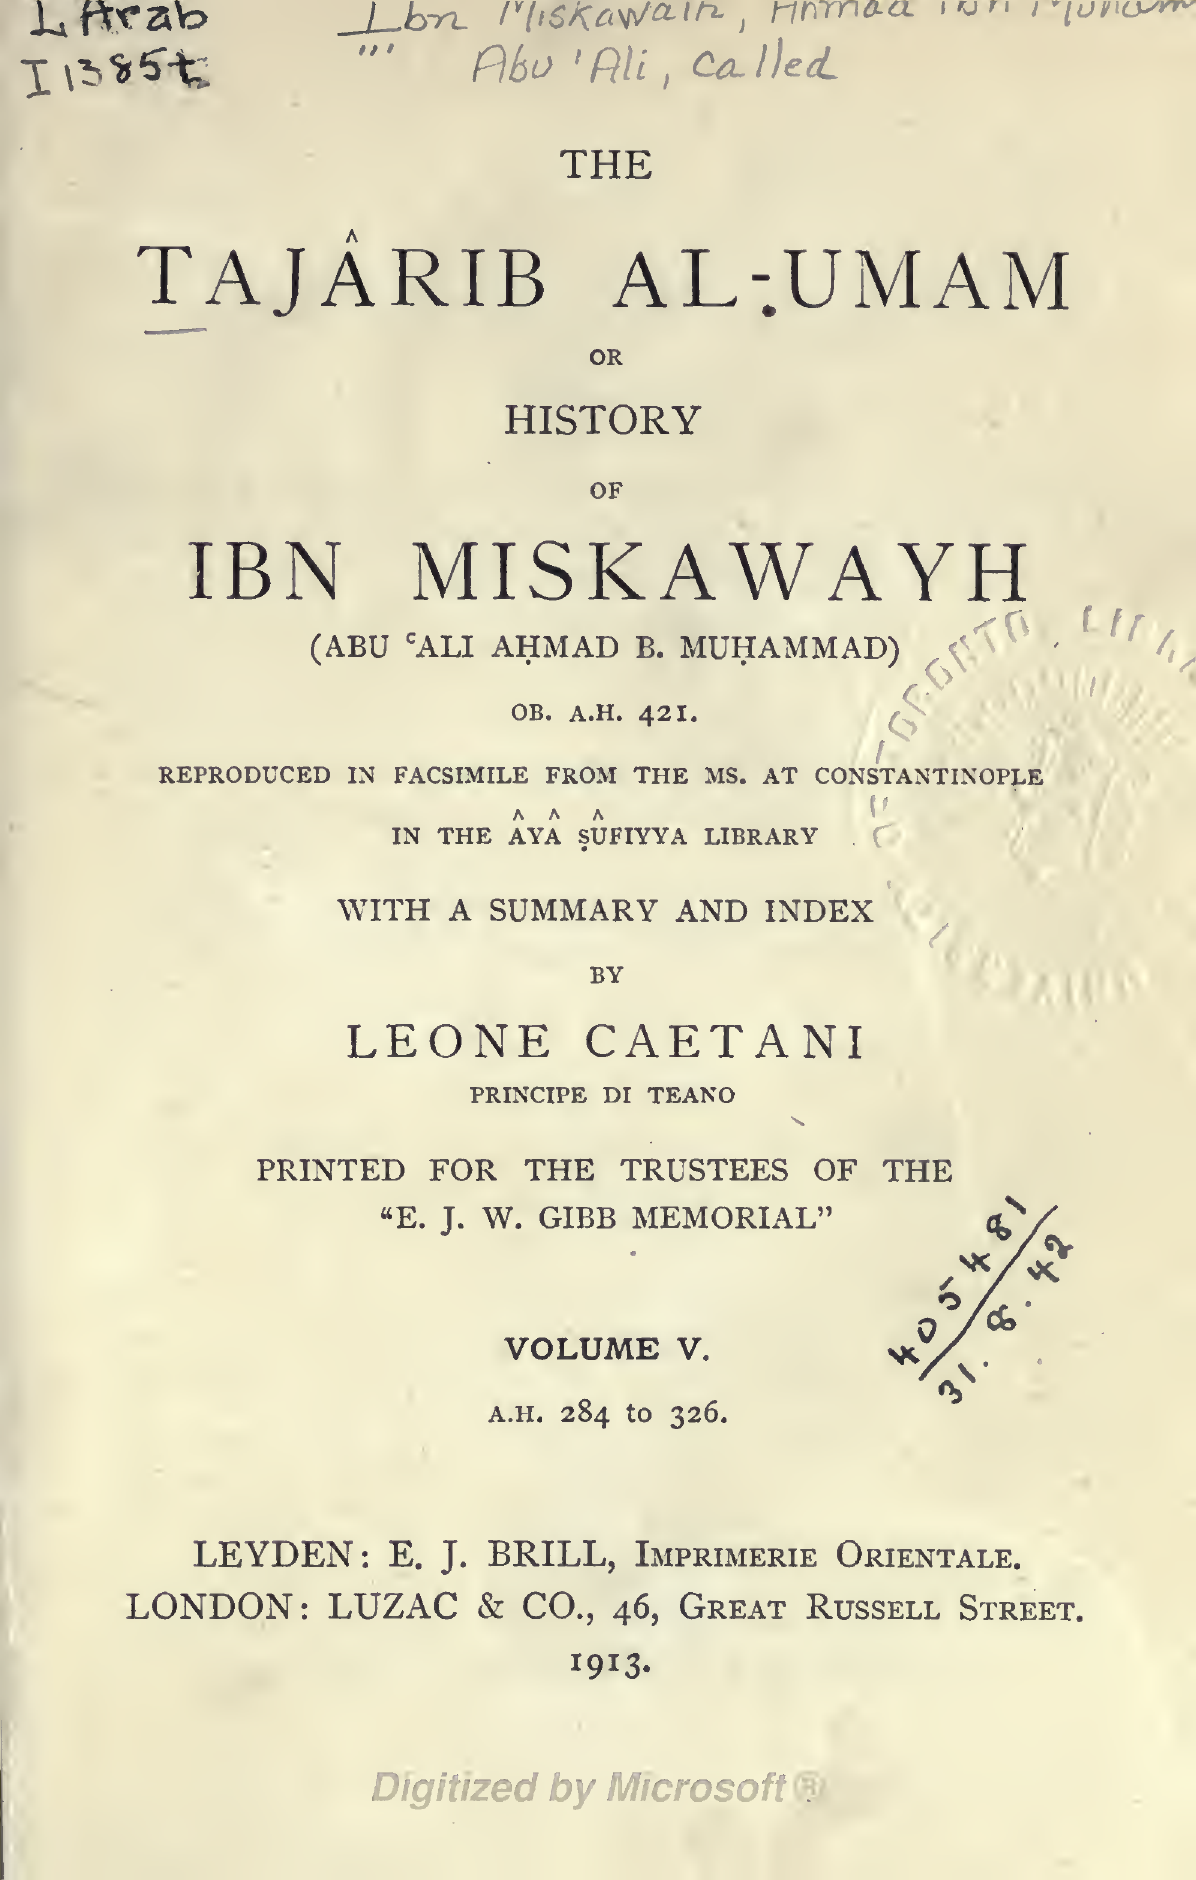 L Arab
I1385t
Ibn Miskawaih, Ahmad ibn
Abu 'Ali, called
THE
TAJÂRIB AL-UMAM
OR
HISTORY
OF
IBN MISKAWAYH
(ABU ʿALI AḤMAD B. MUḤAMMAD)
OB. A.H. 421.
REPRODUCED IN FACSIMILE FROM THE MS. AT CONSTANTINOPLE
IN THE ÂYÂ ṢÛFIYYA LIBRARY
WITH A SUMMARY AND INDEX
BY
LEONE CAETANI
PRINCIPE DI TEANO
PRINTED FOR THE TRUSTEES OF THE
“E. J. W. GIBB MEMORIAL”
405481
31.8.42
VOLUME V.
A.H. 284 to 326.
LEYDEN: E. J. BRILL, IMPRIMERIE ORIENTALE.
LONDON: LUZAC & CO., 46, GREAT RUSSELL STREET.
1913.
Digitized by Microsoft ®